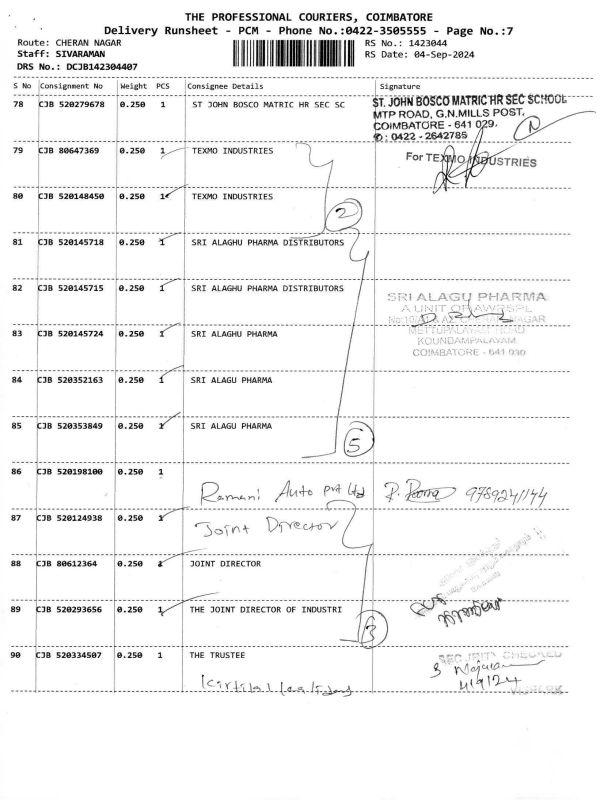 THE PROFESSIONAL COURIERS, COIMBATORE
Delivery Runsheet - PCM - Phone No.:0422-3505555 - Page No.:7
Route: CHERAN NAGAR RS No.: 1423044
Staff: SIVARAMAN RS Date: 04-Sep-2024
DRS No.: DCJB142304407
S No Consignment No Weight PCS Consignee Details Signature
78 CJB 520279678 0.250 1 ST JOHN BOSCO MATRIC HR SEC SC
ST. JOHN BOSCO MATRIC HR SEC SCHOOL
MTP ROAD, G.N.MILLS POST,
COIMBATORE - 641 029.
✆ : 0422 - 2642785
79 CJB 80647369 0.250 1 TEXMO INDUSTRIES For TEXMO INDUSTRIES
80 CJB 520148450 0.250 1 TEXMO INDUSTRIES
2
81 CJB 520145718 0.250 1 SRI ALAGHU PHARMA DISTRIBUTORS
82 CJB 520145715 0.250 1 SRI ALAGHU PHARMA DISTRIBUTORS
SRI ALAGU PHARMA
A UNIT OF AWRSPL
NAGAR
83 CJB 520145724 0.250 1 SRI ALAGHU PHARMA
METTUPALAYAM ROAD
KOUNDAMPALAYAM
COIMBATORE - 641 030
84 CJB 520352163 0.250 1 SRI ALAGU PHARMA
85 CJB 520353849 0.250 1 SRI ALAGU PHARMA
5
86 CJB 520198100 0.250 1
Ramani Auto Pvt Ltd 9789241144
87 CJB 520124938 0.250 1
Joint Director
88 CJB 80612364 0.250 1 JOINT DIRECTOR
89 CJB 520293656 0.250 1 THE JOINT DIRECTOR OF INDUSTRI
3
90 CJB 520334507 0.250 1 THE TRUSTEE
SECURITY CHECKED
4/9/24